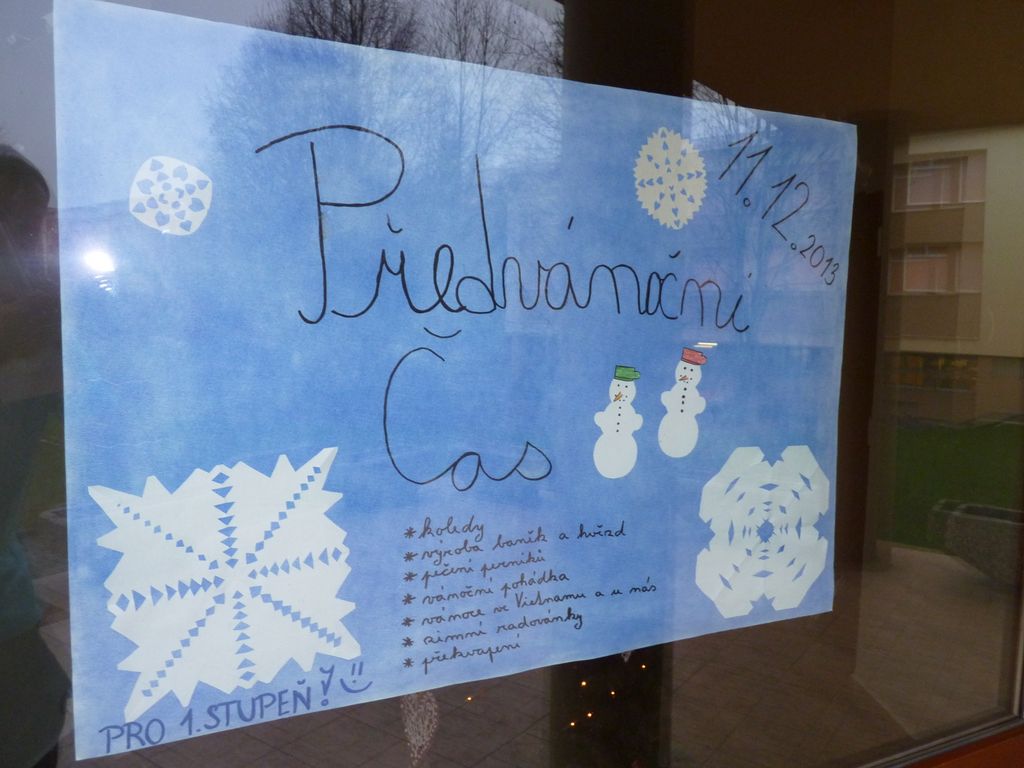 11.12.2013
Předvánoční
Čas
* koledy
* výroba baněk a hvězd
* pečení perníků
* vánoční pohádka
* vánoce ve Vietnamu a u nás
* zimní radovánky
* překvapení
PRO 1. STUPEŇ! !!